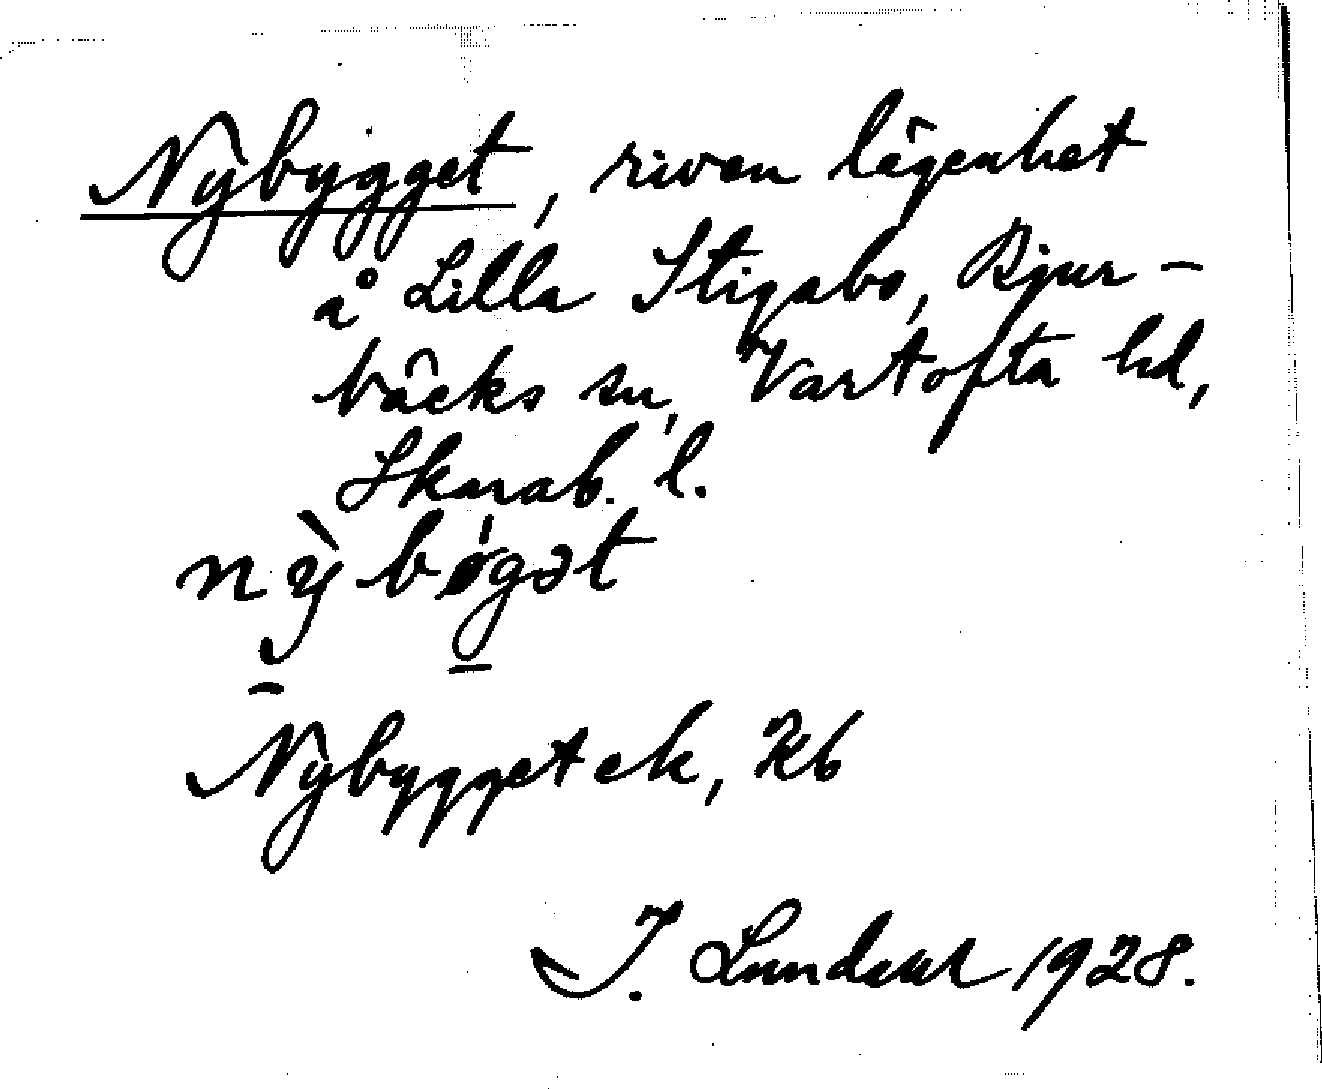 Nybygget, riven lägenhet
å Lilla Stigabo, Bjur-
bäcks sn, Vartofta hd,
Skarab. l.
nỳbǿgət
Nybygget ek, Kb
J. Lundahl 1928.